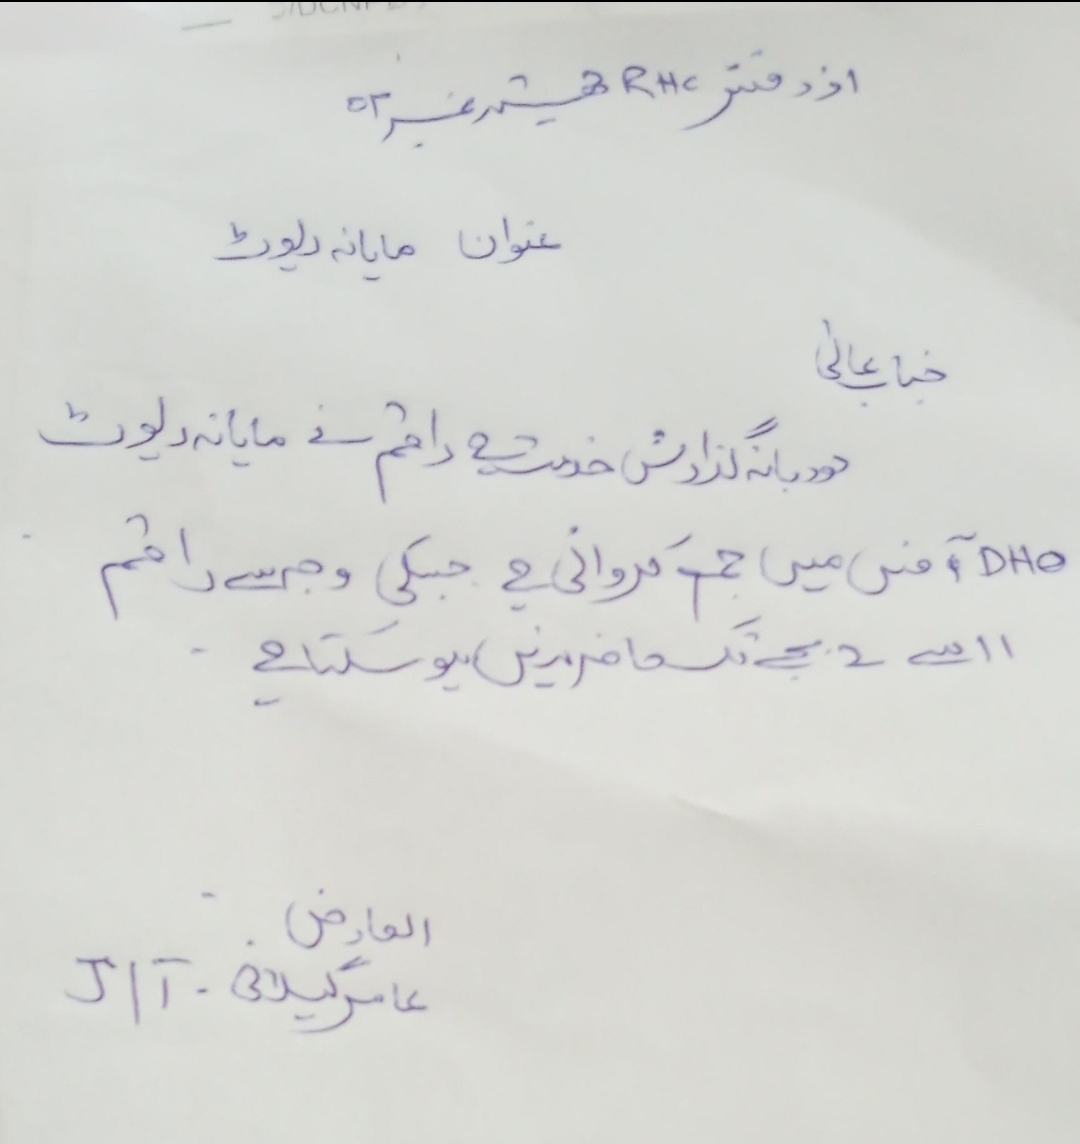 از دفتر RHC چشمہ نمبر ۰۲
عنوان مایانہ رپورٹ
جناب عالی
مودبانہ گذارش خدمت ہے راقم نے مایانہ رپورٹ
DHO آفس میں جمع کروانی ہے جسکی وجہ سے راقم
11 سے 2 بجے تک حاضر نہیں ہو سکتا ہے ۔
العارض
عامر گیلانی - J/T